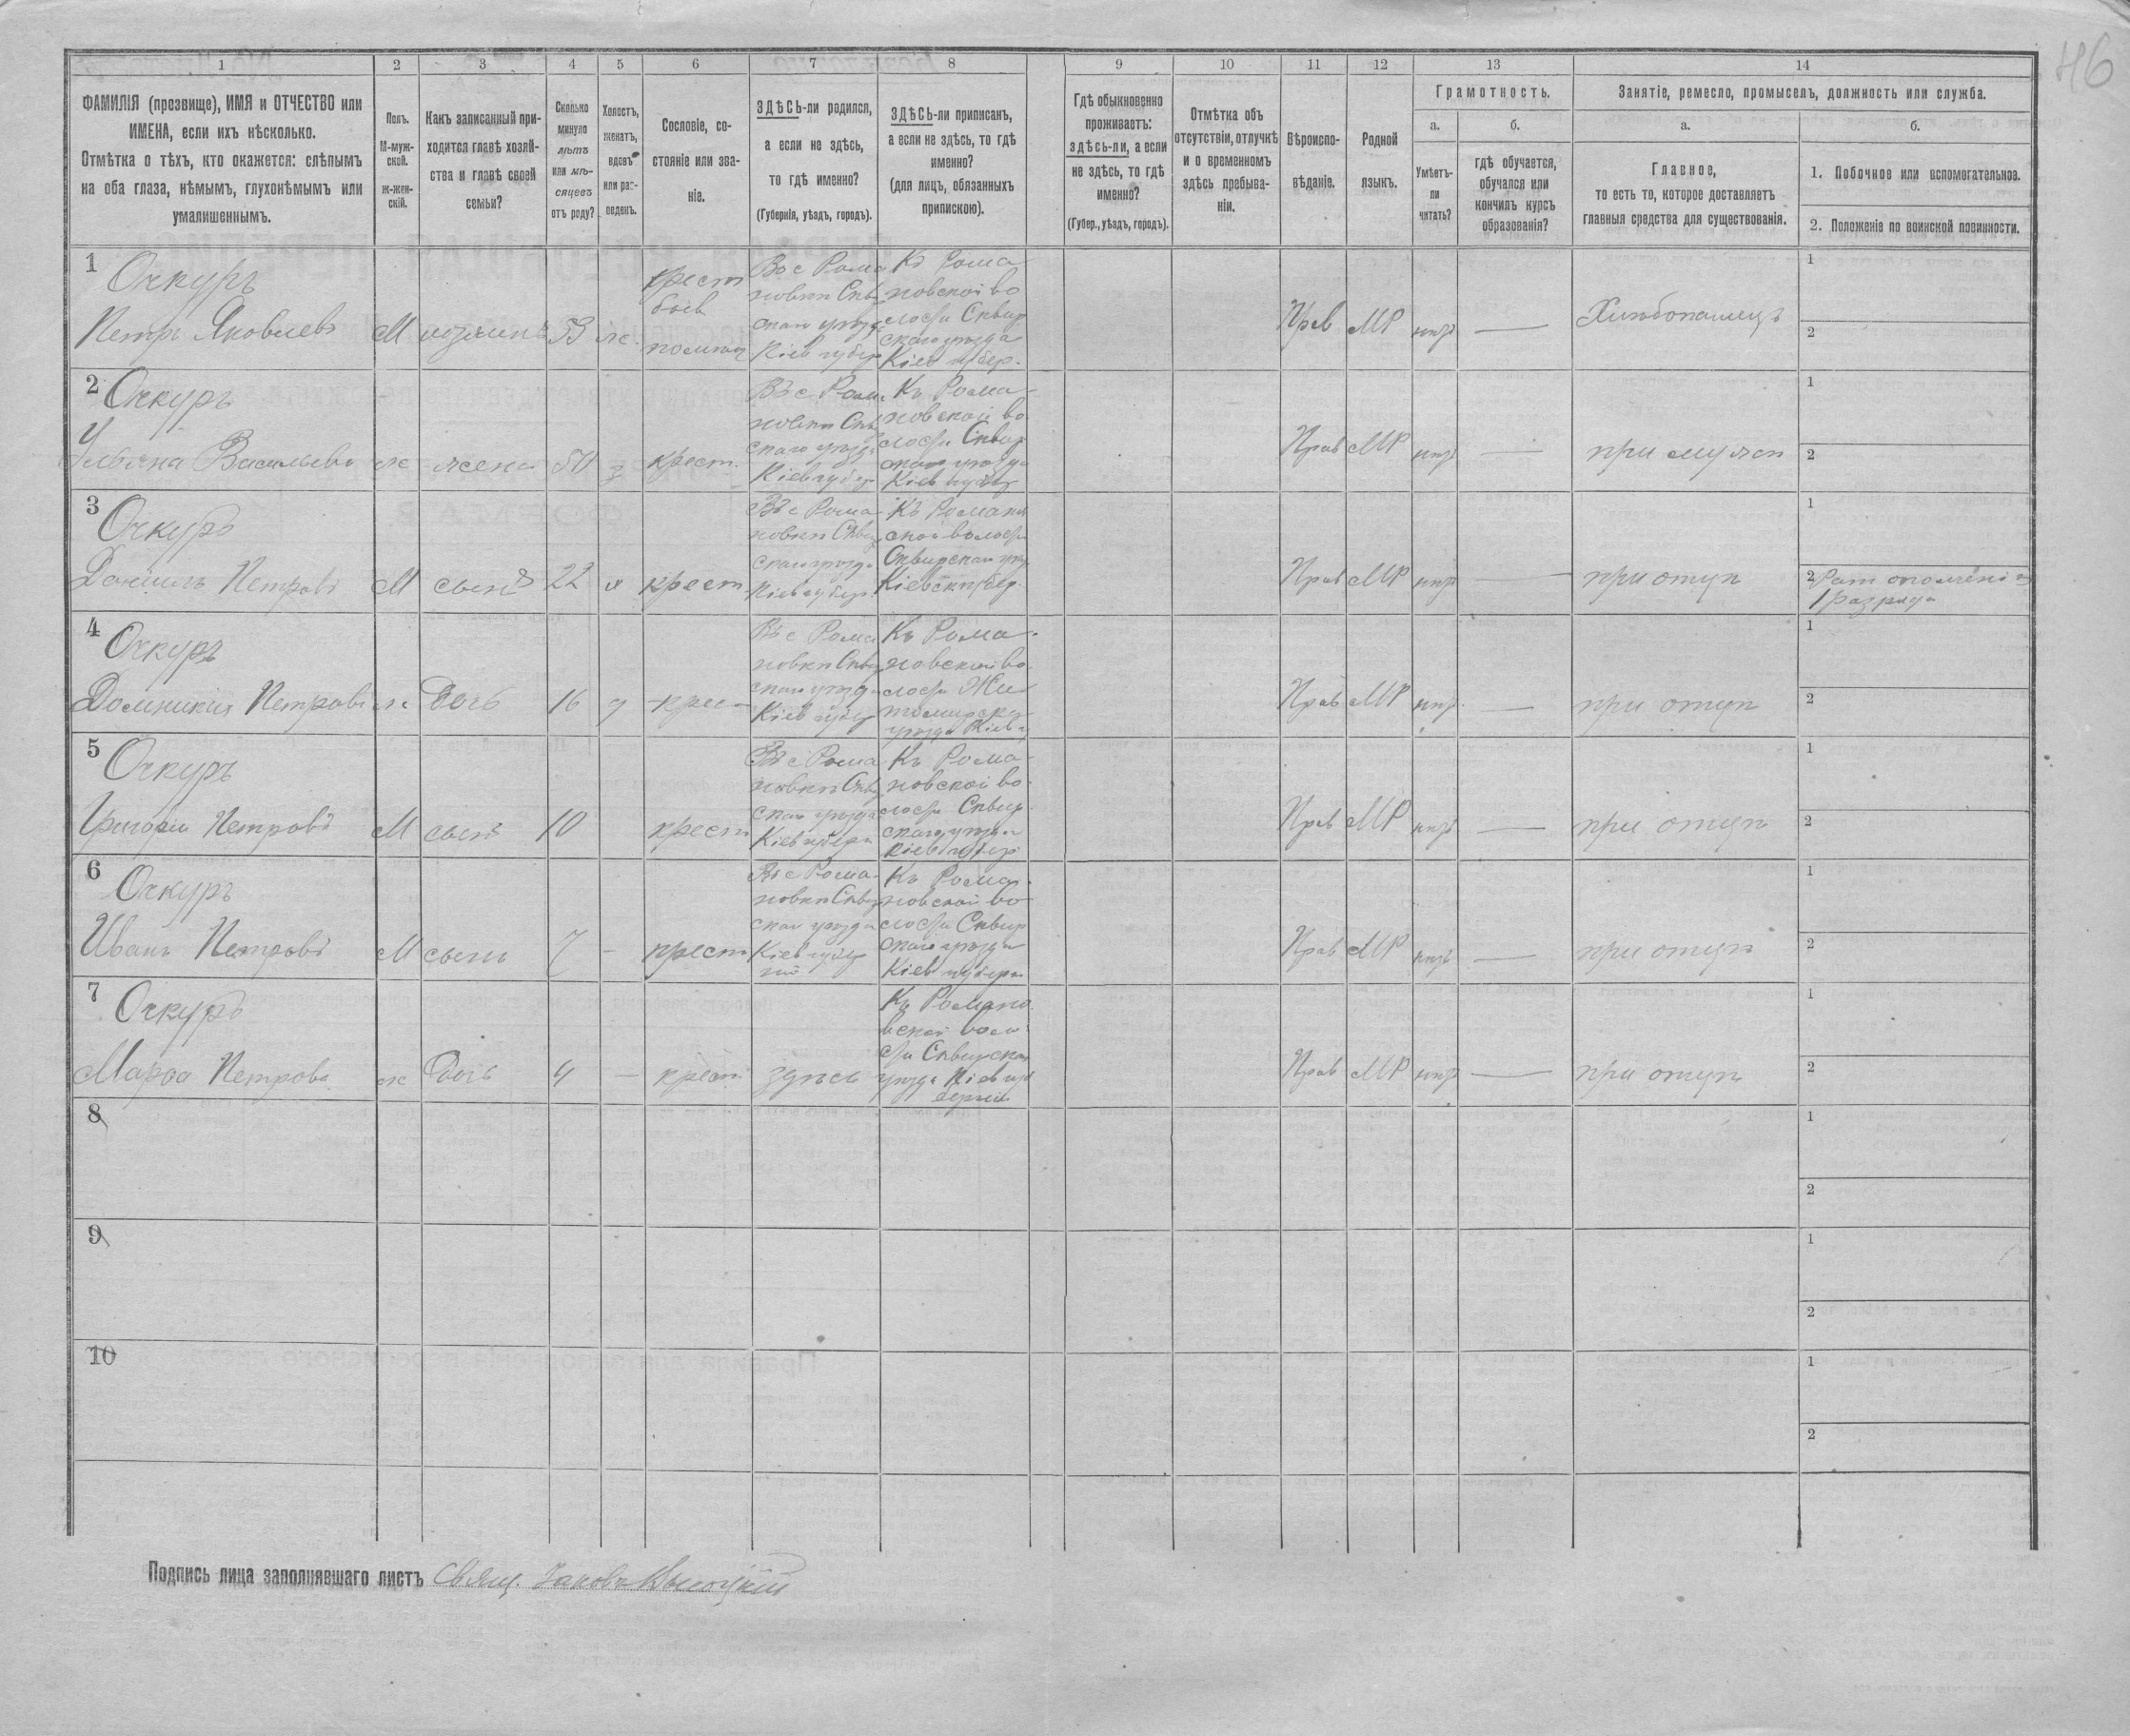 46
1 2 3 4 5 6 7 8 9 10 11 12 13 14
ФАМИЛІЯ (прозвище), ИМЯ и ОТЧЕСТВО или
ИМЕНА, если ихъ нѣсколько.
Отмѣтка о тѣхъ, кто окажется: слѣпымъ
на оба глаза, нѣмымъ, глухонѣмымъ или
умалишеннымъ.
Полъ.
М-муж-
ской.
ж-жен-
скій.
Какъ записанный при-
ходится главѣ хозяй-
ства и главѣ своей
семьи?
Сколько
минуло
лѣтъ
или мѣ-
сяцевъ
отъ роду?
Холостъ,
женатъ,
вдовъ
или раз-
веденъ.
Сословіе, со-
стояніе или зва-
ніе.
ЗДѢСЬ-ли родился,
а если не здѣсь,
то гдѣ именно?
(Губернія, уѣздъ, городъ).
ЗДѢСЬ-ли приписанъ,
а если не здѣсь, то гдѣ
именно?
(для лицъ, обязанныхъ
припискою).
Гдѣ обыкновенно
проживаетъ:
здѣсь-ли, а если
не здѣсь, то гдѣ
именно?
(Губер., уѣздъ, городъ).
Отмѣтка объ
отсутствіи, отлучкѣ
и о временномъ
здѣсь пребыва-
ніи.
Вѣроиспо-
вѣданіе.
Родной
языкъ.
Грамотность.
а.
Умѣетъ-
ли
читать?
б.
гдѣ обучается,
обучался или
кончилъ курсъ
образованія?
Занятіе, ремесло, промыселъ, должность или служба.
а.
Главное,
то есть то, которое доставляетъ
главныя средства для существованія.
б.
1. Побочное или вспомогательное.
2. Положеніе по воинской повинности.
1
Очкуръ
Петръ Яковлевъ
М
хозяинъ
53
ж.
крест
Во с Рома
Кіев губер
Къ Рома
новской во
лости Сквир
скаго уѣзда
Кіев губер.
Прав
МР
Хлѣбопашецъ
1
2
2
Очкуръ
Ульяна Васильева
ж
жена
50
з
крест.
Въ с Рома
новки Скв
скаго уѣзда
Кіев губер
Къ Рома
новской во
лости Сквир
скаго уѣзда
Кіев губер
Прав
МР
—
при мужѣ
1
2
3
Очкуръ
Даніилъ Петровъ
М
сынъ
22
х
крест
Въ с Рома
новки Сквир
скаго уѣзда
Кіев губер
Къ Романов
ской волости
Сквирскаго уѣз
Кіевск губер.
Прав
МР
—
при отцѣ
1
2 Рат ополчені
1 разряда
4
Очкуръ
Домникія Петрова
ж
дочь
16
д
крес
Въ с Рома
новки Сквир
скаго уѣзда
Кіев губер
Къ Рома
новской во
лости Жи
томирска
уѣзда Кіев г
Прав
МР
—
при отцѣ
1
2
5
Очкуръ
Григорій Петровъ
М
сынъ
10
крест
Въ с Рома
новки Сквир
скаго уѣзда
Кіев губерн
Къ Рома
новской во
лости Сквир
скаго уѣзда
Кіев губер
Прав
МР
—
при отцѣ
1
2
6
Очкуръ
Иванъ Петровъ
М
сынъ
7
—
крест
Въ с Рома
новки Сквир
скаго уѣзда
Кіев губер
Къ Рома
новской во
лости Сквир
скаго уѣзда
Кіев губерн
Прав
МР
—
при отцѣ
1
2
7
Очкуръ
Марфа Петрова
ж
дочь
4
—
крест
здѣсь
Къ Романо
вской воло
сти Сквирска
уѣзда Кіев гу
берніи
Прав
МР
—
при отцѣ
1
2
8
1
2
9
1
2
10
1
2
Подпись лица заполнявшаго листъ Свящ. Іаковъ